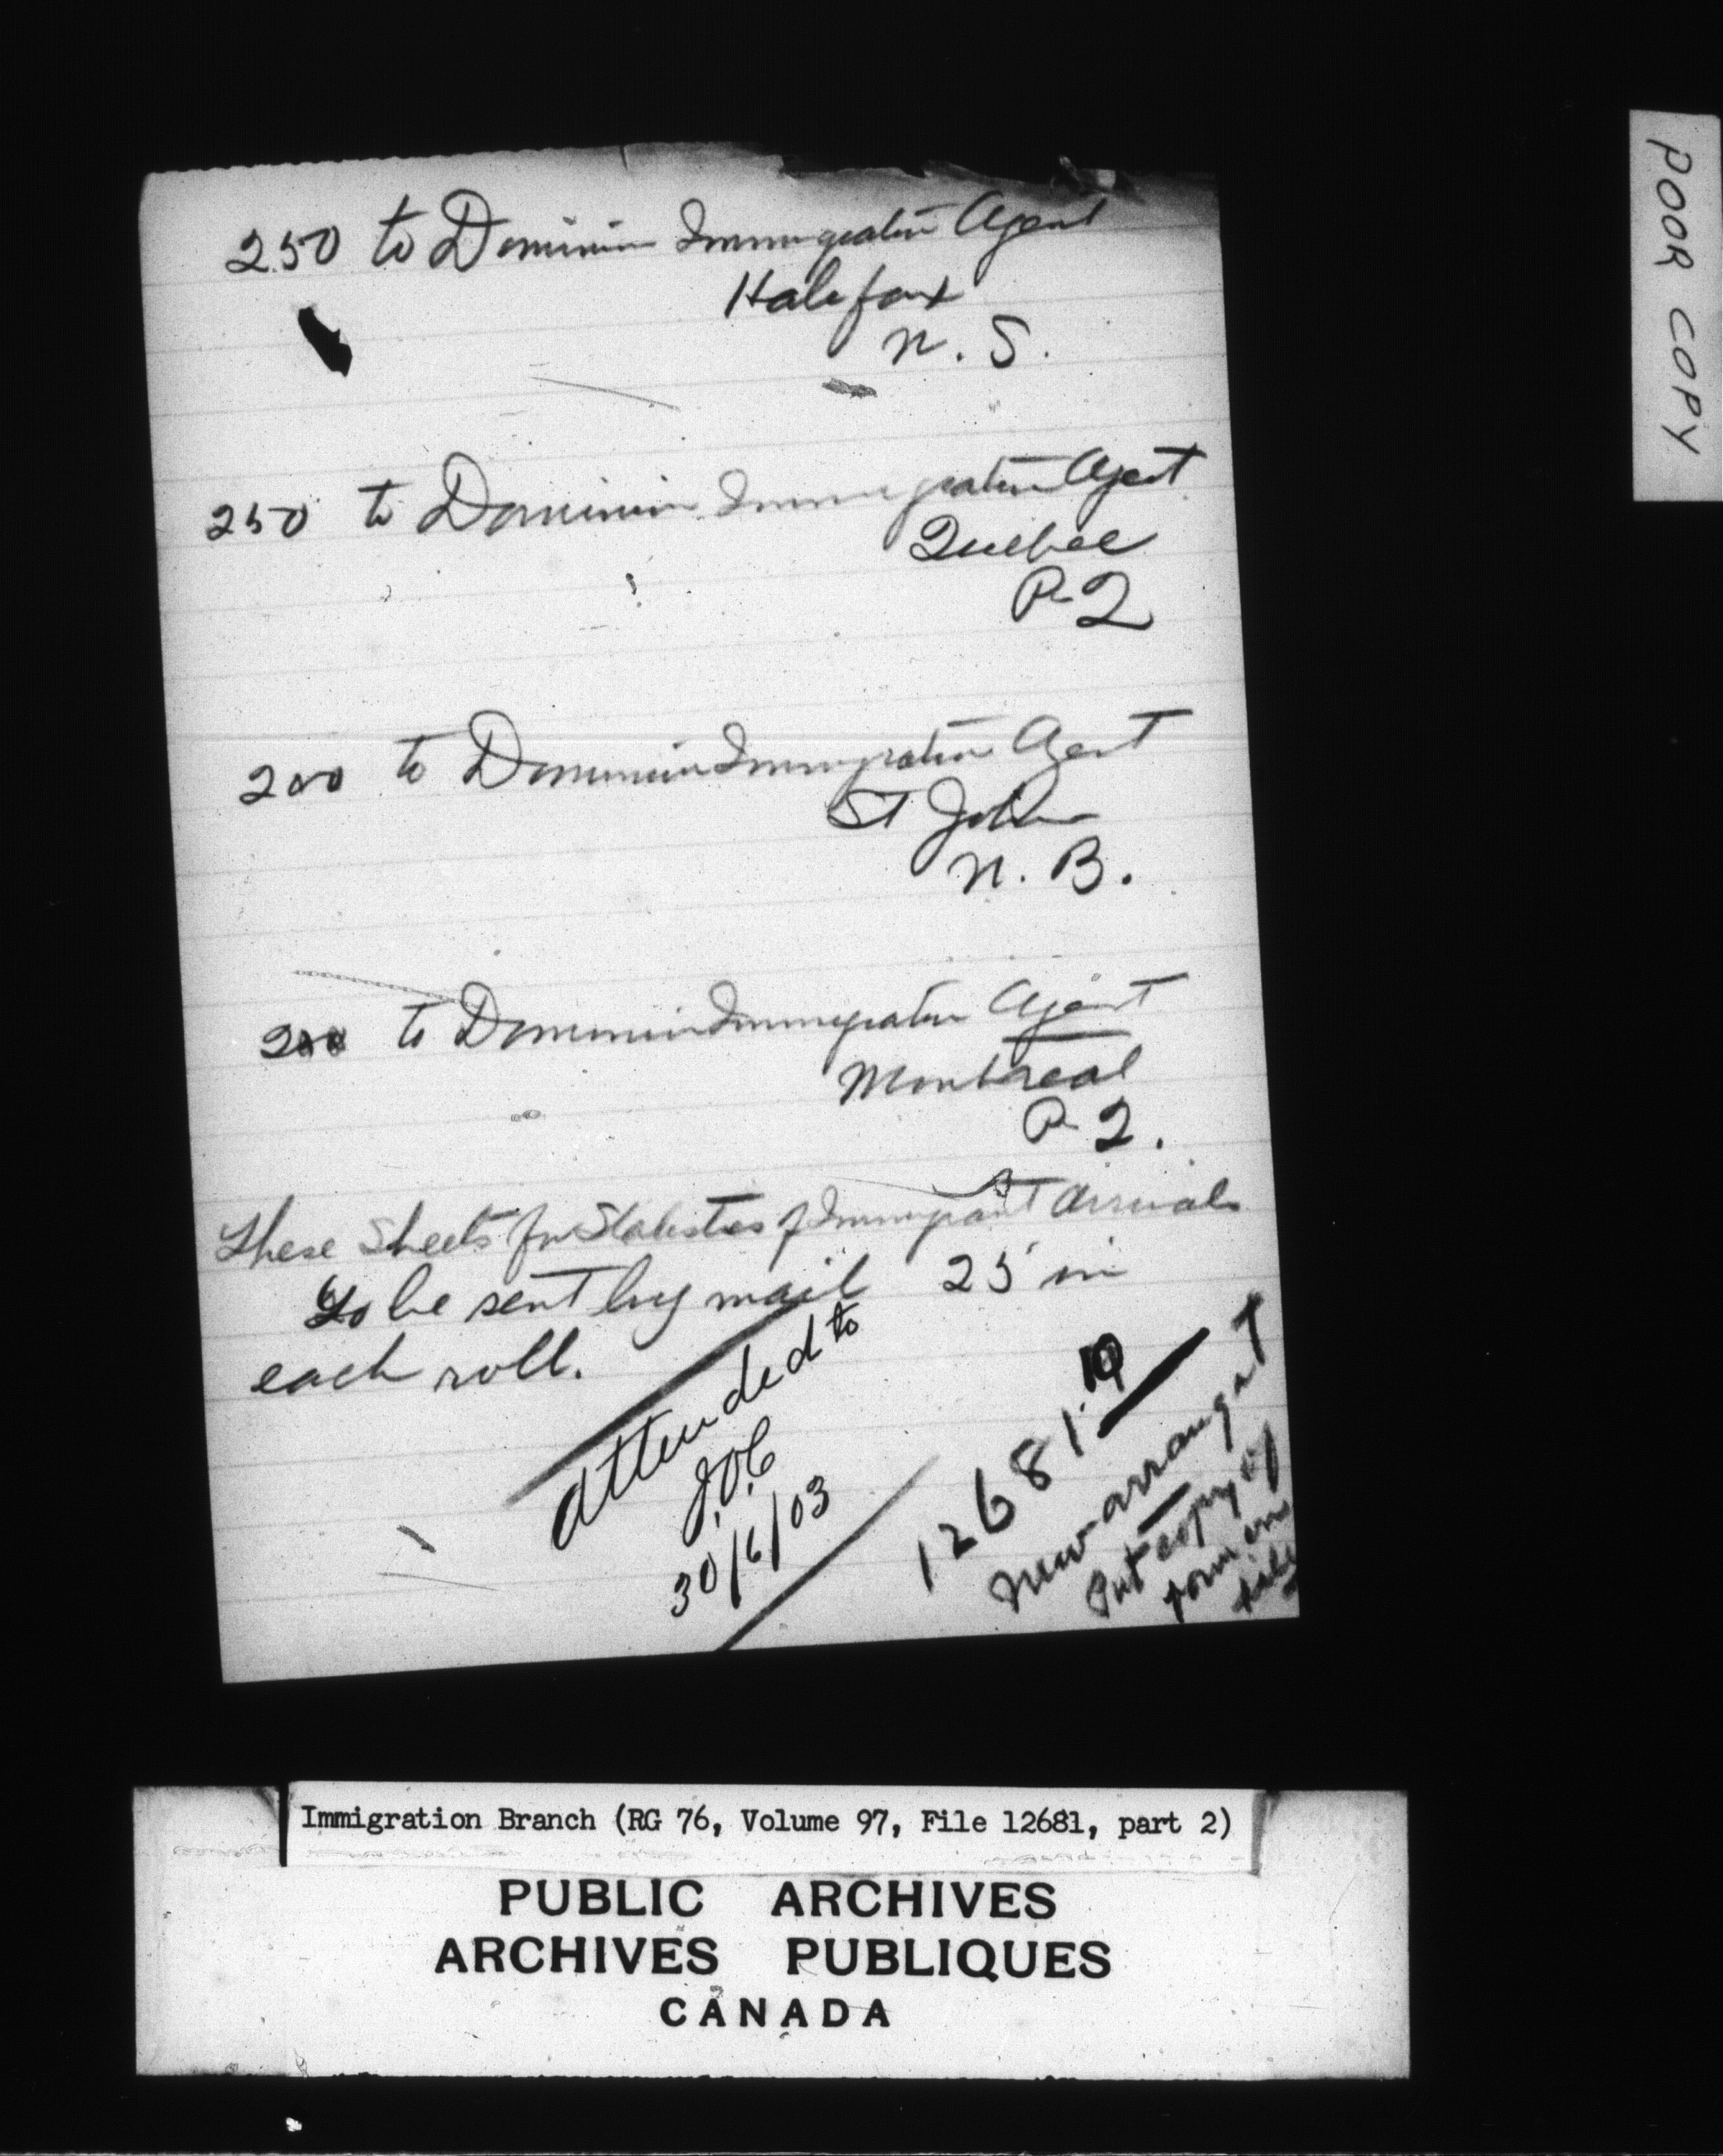 250 to Dominion Immigration Agent
Halifax
N. S.
250 to Dominion Immigration Agent
Quebec
P Q
200 to Dominion Immigration Agent
St John
N. B.
200 to Dominion Immigration Agent
Montreal
P Q.
These Sheets for Statistics of Immigrant Arrivals
To be sent by mail 25 in
each roll.
Attended to
30/6/03
12681
New arrangt
Put copy of
form on
file
POOR COPY
Immigration Branch (RG 76, Volume 97, File 12681, part 2)
PUBLIC ARCHIVES
ARCHIVES PUBLIQUES
CANADA